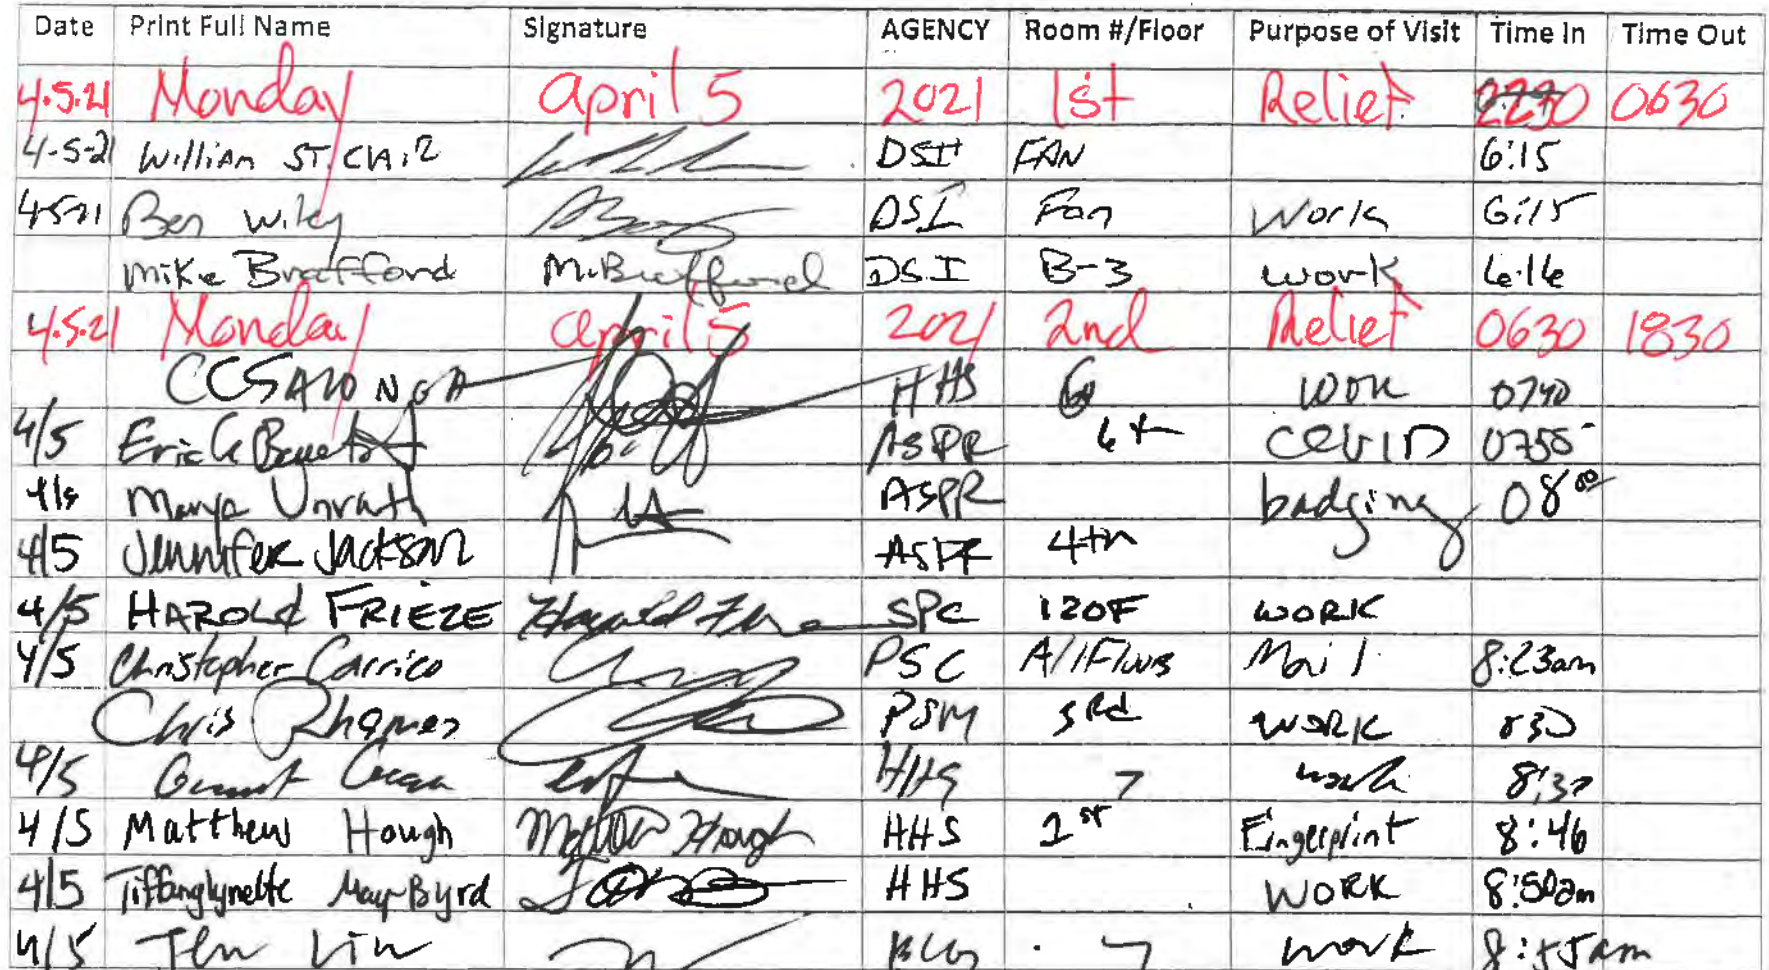 Date Print Full Name Signature AGENCY Room #/Floor Purpose of Visit Time In Time Out
4.5.21 Monday April 5 2021 1st Relief 2230 0630
4-5-21 William ST. CLAIR DSI FAN 6:15
4-5-21 Ben Wiley DSI Fan Work 6:15
Mike Brafford M. Brafford DSI B-3 work 6:16
4.5.21 Monday April 5 2021 2nd Relief 0630 1830
HHS 6 work 0740
4/5 Eric ASPR 6th COVID 0755
4/5 Marya Unrath ASPR badging 08 00
4/5 Jennifer Jackson ASPR 4th
4/5 HAROLd FRIEZE Harold SPC 120F WORK
4/5 Christopher Carrico PSC All Flurs Mail 8:23am
Chris Rhames PSM 3Rd WORK 830
4/5 HHS 7 work 8:30
4/5 Matthew Hough Matthew Hough HHS 1st Fingerprint 8:46
4/5 Tiffanylynette May-Byrd HHS WORK 8:50am
4/5 Jen Lin 7 work 8:55am